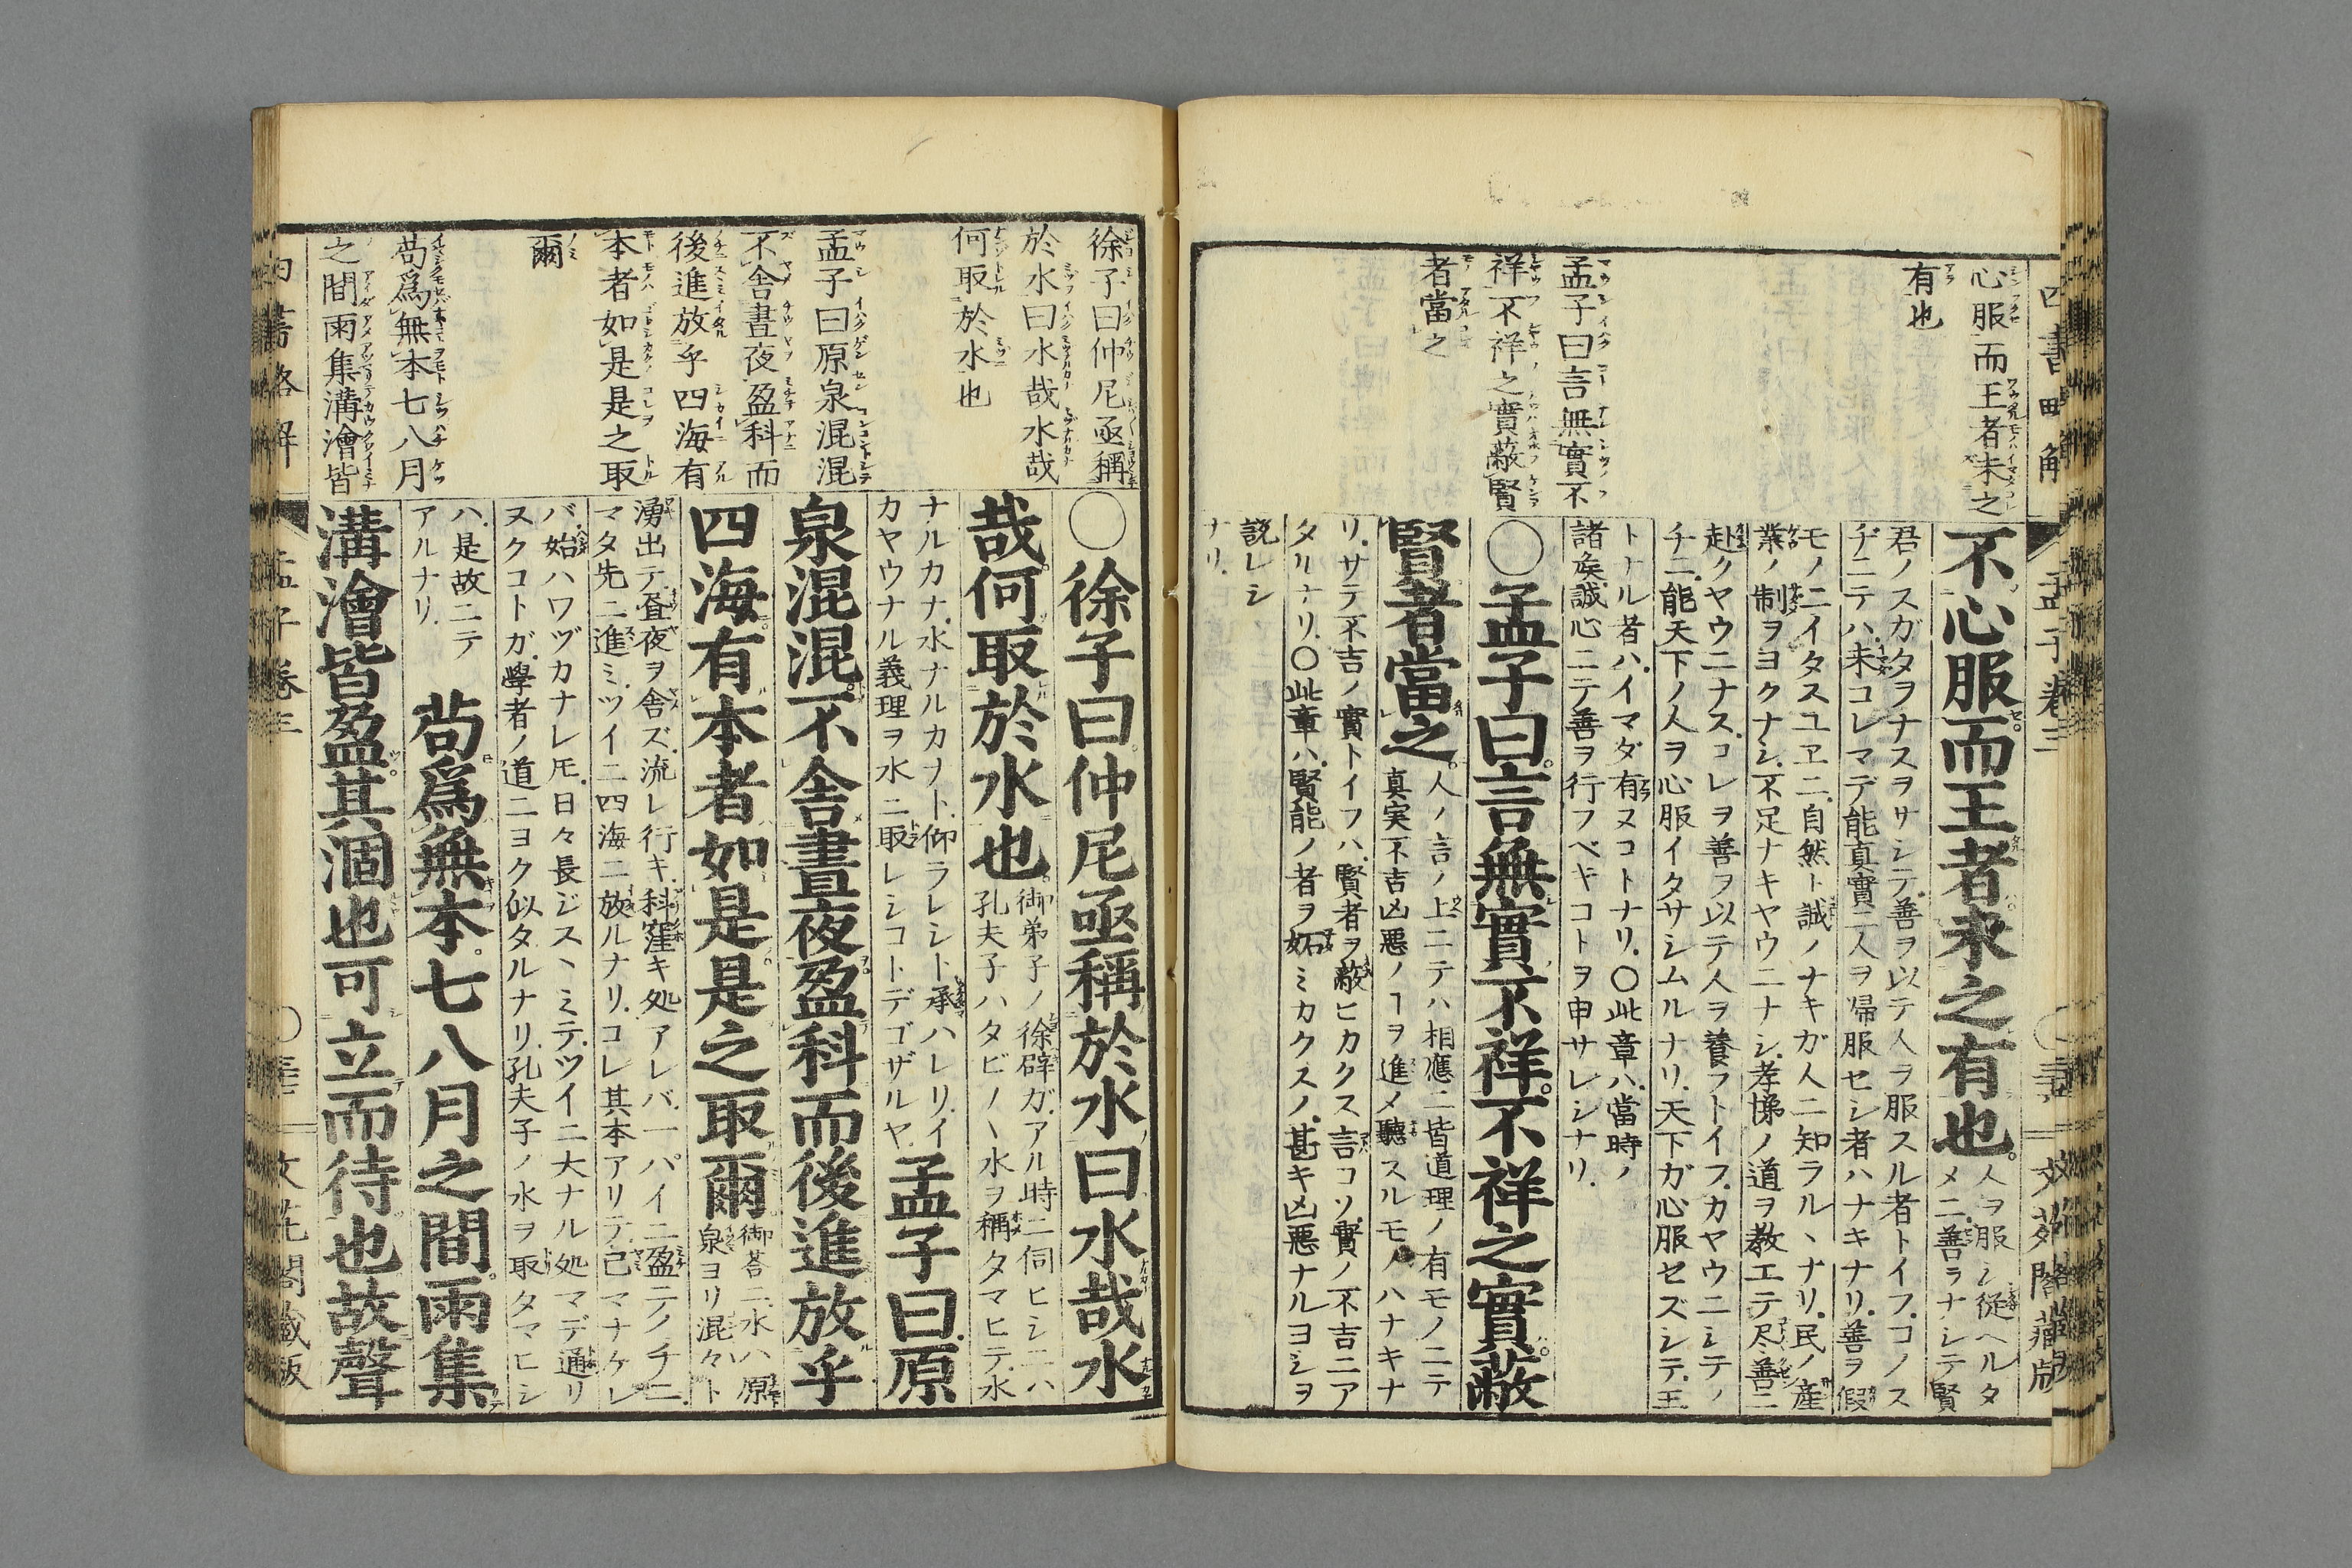 四書略解
孟子卷三
心服而王者未之
有也
孟子曰言無實不
祥不祥之實蔽賢
者當之
不心服而王者未之有也。
人ヲ服シ従ヘルタ
メニ善ヲナシテ賢
君ノスガタヲナスヲサシテ善ヲ以テ人ヲ服スル者トイフ.コノス
ヂニテハ.未コレマデ能真實ニ人ヲ帰服セシ者ハナキナリ.善ヲ假
モノニイタスユヱニ.自然ト誠ノナキガ人ニ知ラルヽナリ.民ノ產
業ノ制ヲヨクナシ.不足ナキヤウニナシ.孝悌ノ道ヲ教エテ尽善ニ
赴クヤウニナス.コレヲ善ヲ以テ人ヲ養フトイフ.カヤウニシテノ
チニ.能天下ノ人ヲ心服イタサシムルナリ.天下ガ心服セズシテ.王
トナル者ハ.イマダ有ヌコトナリ.〇此章ハ.當時ノ
諸矦誠心ニテ善ヲ行フベキコトヲ申サレシナリ.
〇孟子曰。言無實不祥。不祥之實蔽
賢者當之。
人ノ言ノ上ニテハ相應ニ皆道理ノ有モノニテ
真実不吉凶悪ノヿヲ進メ聽スルモノハナキナ
リ.サテ不吉ノ實トイフハ.賢者ヲ蔽ヒカクス言コソ.實ノ不吉ニア
タルナリ.〇此章ハ.賢能ノ者ヲ妬ミカクスノ.甚キ凶悪ナルヨシヲ
説レシ
ナリ.
徐子曰仲尼亟稱
於水曰水哉水哉
何取於水也
孟子曰原泉混混
不舎晝夜盈科而
後進放乎四海有
本者如是是之取
爾
苟爲無本七八月
之間雨集溝澮皆
〇徐子曰仲尼亟稱於水曰水哉水
哉。何取於水也。
御弟子ノ徐辟ガ.アル時ニ伺ヒシニハ
孔夫子ハタビ〳〵水ヲ稱タマヒテ.水
ナルカナ.水ナルカナト.仰ラレシト承ハレリ.イ
カヤウナル義理ヲ水ニ取レシコトデゴザルヤ.
孟子曰.原
泉混混。不舎晝夜盈科而後進放乎
四海有本者如是是之取爾
御荅ニ水ハ原
泉ヨリ混々ト
湧出テ.昼夜ヲ舎ズ.流レ行キ.科窪キ処アレバ.一パイニ盈テノチニ.
マタ先ニ進ミ.ツイニ四海ニ放ルナリ.コレ其本アリテ.己マナケレ
バ.始ハワヅカナレ𪜈.日々長ジスヽミテ.ツイニ大ナル処マデ通リ
ヌクコトガ.學者ノ道ニヨク似タルナリ.孔夫子ノ水ヲ取タマヒシ
ハ.是故ニテ
アルナリ.
苟爲無本。七八月之間。雨集
溝澮皆盈其涸也可立而待也故聲
四書略解
孟子卷三